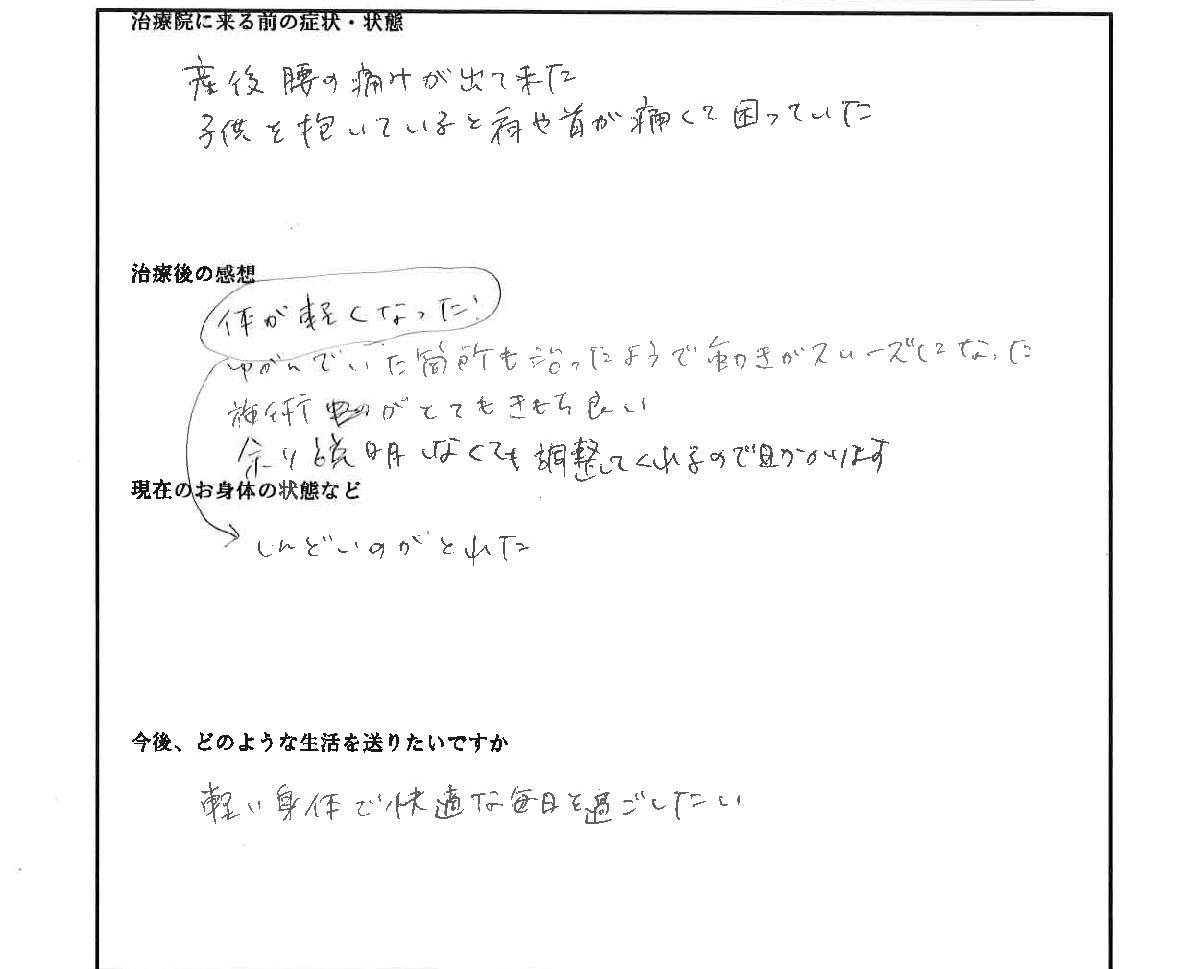 治療院に来る前の症状・状態
産後腰の痛みが出て来た
子供を抱いていると肩や首が痛くて困っていた
治療後の感想
体が軽くなった!
ゆがんでいた箇所も治ったようで動きがスムーズになった
施術がとてもきもち良い
余り説明しなくても調整してくれるので助かります
現在のお身体の状態など
しんどいのがとれた
今後、どのような生活を送りたいですか
軽い身体で快適な毎日を過ごしたい